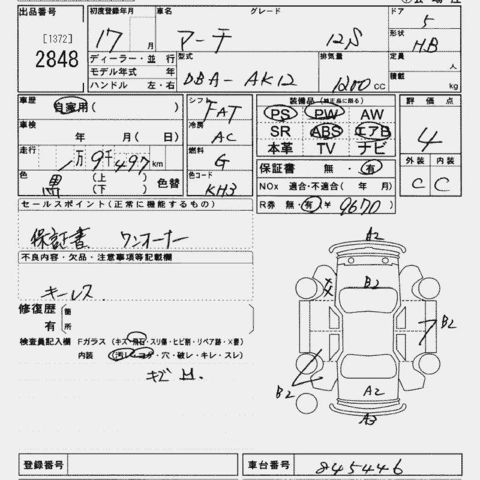 出品番号
[1372]
2848
初度登録年月 車名 グレード ドア
17 月 マーチ 12S 5
形状 H.B
ディーラー・並行 型式 排気量 定員 人
モデル年式 年 DBA-AK12 1200 CC 積載 kg
ハンドル 左・右
車歴 自家用 ( ) シフト FAT 装備品 (純正品に限る) 評価点
車検 年 月 ( 日 ) 冷房 AC PS PW AW 4
走行 1万9千497 km 燃料 G SR ABS エアB
本革 TV ナビ 外装 内装
色 黒 (上 ) (下 ) 色替 色コード KH3 保証書 無・有 C C
NOx 適合・不適合( 年 月)
R券 無・有 ¥ 9670
セールスポイント(正常に機能するもの)
保証書 ワンオーナー
不良内容・欠品・注意事項等記載欄
キーレス
修復歴 箇
有 所
検査員記入欄 Fガラス (キズ・飛石・スリ傷・ヒビ割・リペア跡・×要)
内装 (汚レ・コゲ・穴・破レ・キレ・スレ)
A2
B2
B2
B2
A2
A3
登録番号 車台番号 845446